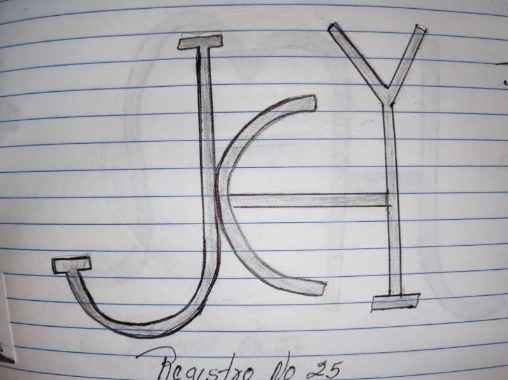 JCY
Registro No 25